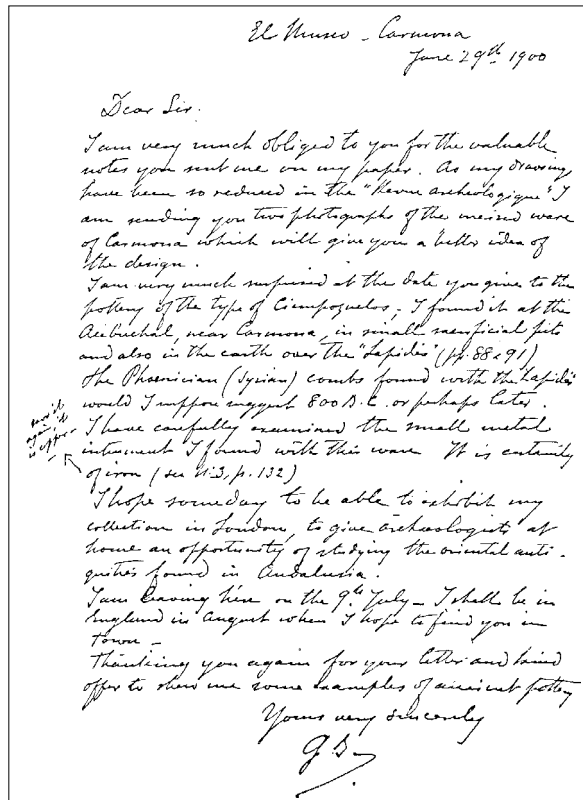 El Museo - Carmona
June 29th 1900
Dear Sir.
I am very much obliged to you for the valuable
notes you sent me on my paper. As my drawings
have been so reduced in the "Revue archeologique" I
am sending you two photographs of the incised ware
of Carmona which will give you a better idea of
the design.
I am very much surprised at the date you give to the
pottery of the type of Ciempozuelos. I found it at the
Acebuchal, near Carmona, in small sacrificial pits
and also in the earth over the "Lapidés" (pp. 88 & 91)
The Phoenician (Syrian) combs found with the "Lapidés"
would I suppose suggest 800 B.C. or perhaps later.
I have carefully examined the small metal
instrument I found with this ware. It is certainly
of iron (see N.3, p. 132)
again, it
is copper -
I hope someday to be able to exhibit my
collection in London, to give archæologists at
home an opportunity of studying the oriental anti-
quities found in Andalusia.
I am leaving here on the 9th July - I shall be in
England in August when I hope to find you in
Town -
Thanking you again for your letter and kind
offer to show me some examples of ancient pottery
Yours very sincerely
G B